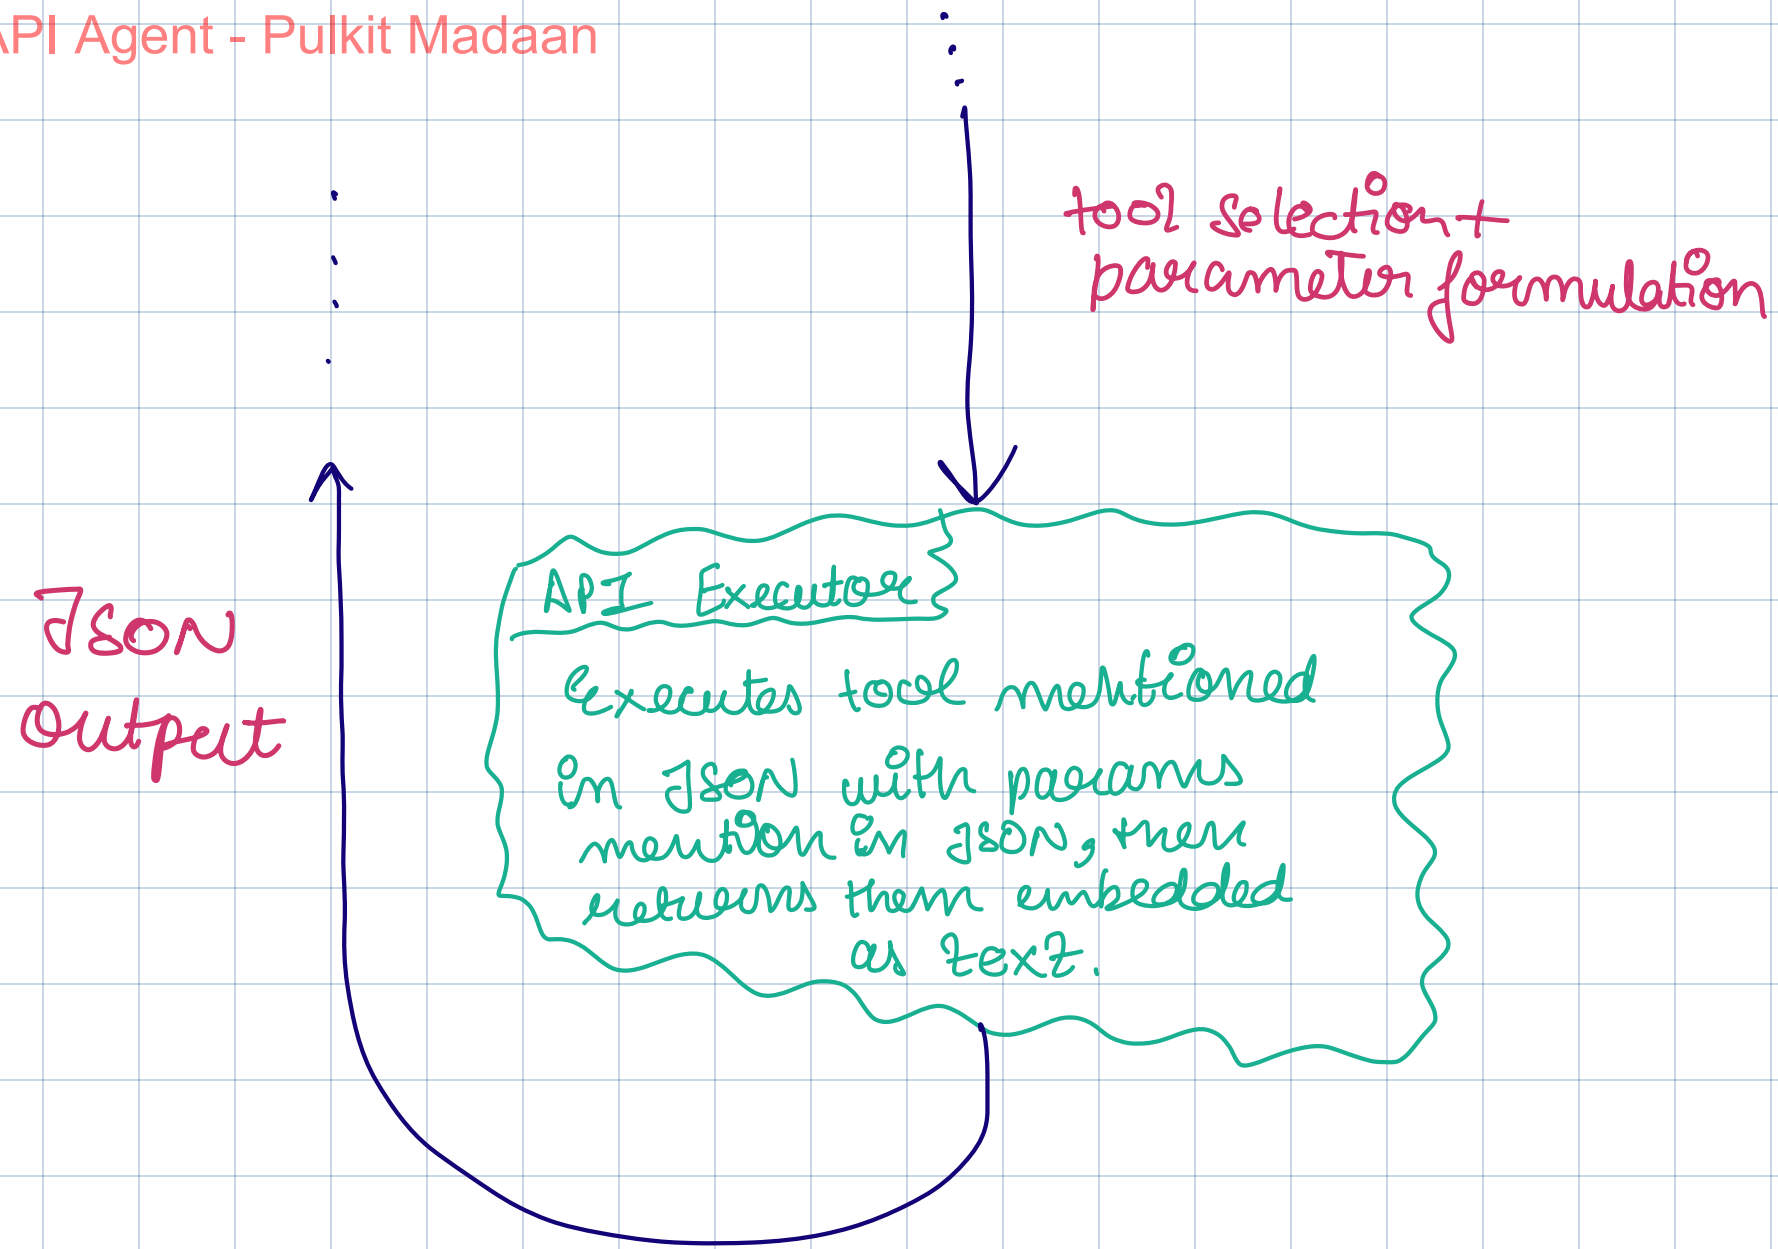 API Agent - Pulkit Madaan
tool selection +
parameter formulation
JSON
output
API Executor
Executes tool mentioned
in JSON with params
mention in JSON, then
returns them embedded
as text.